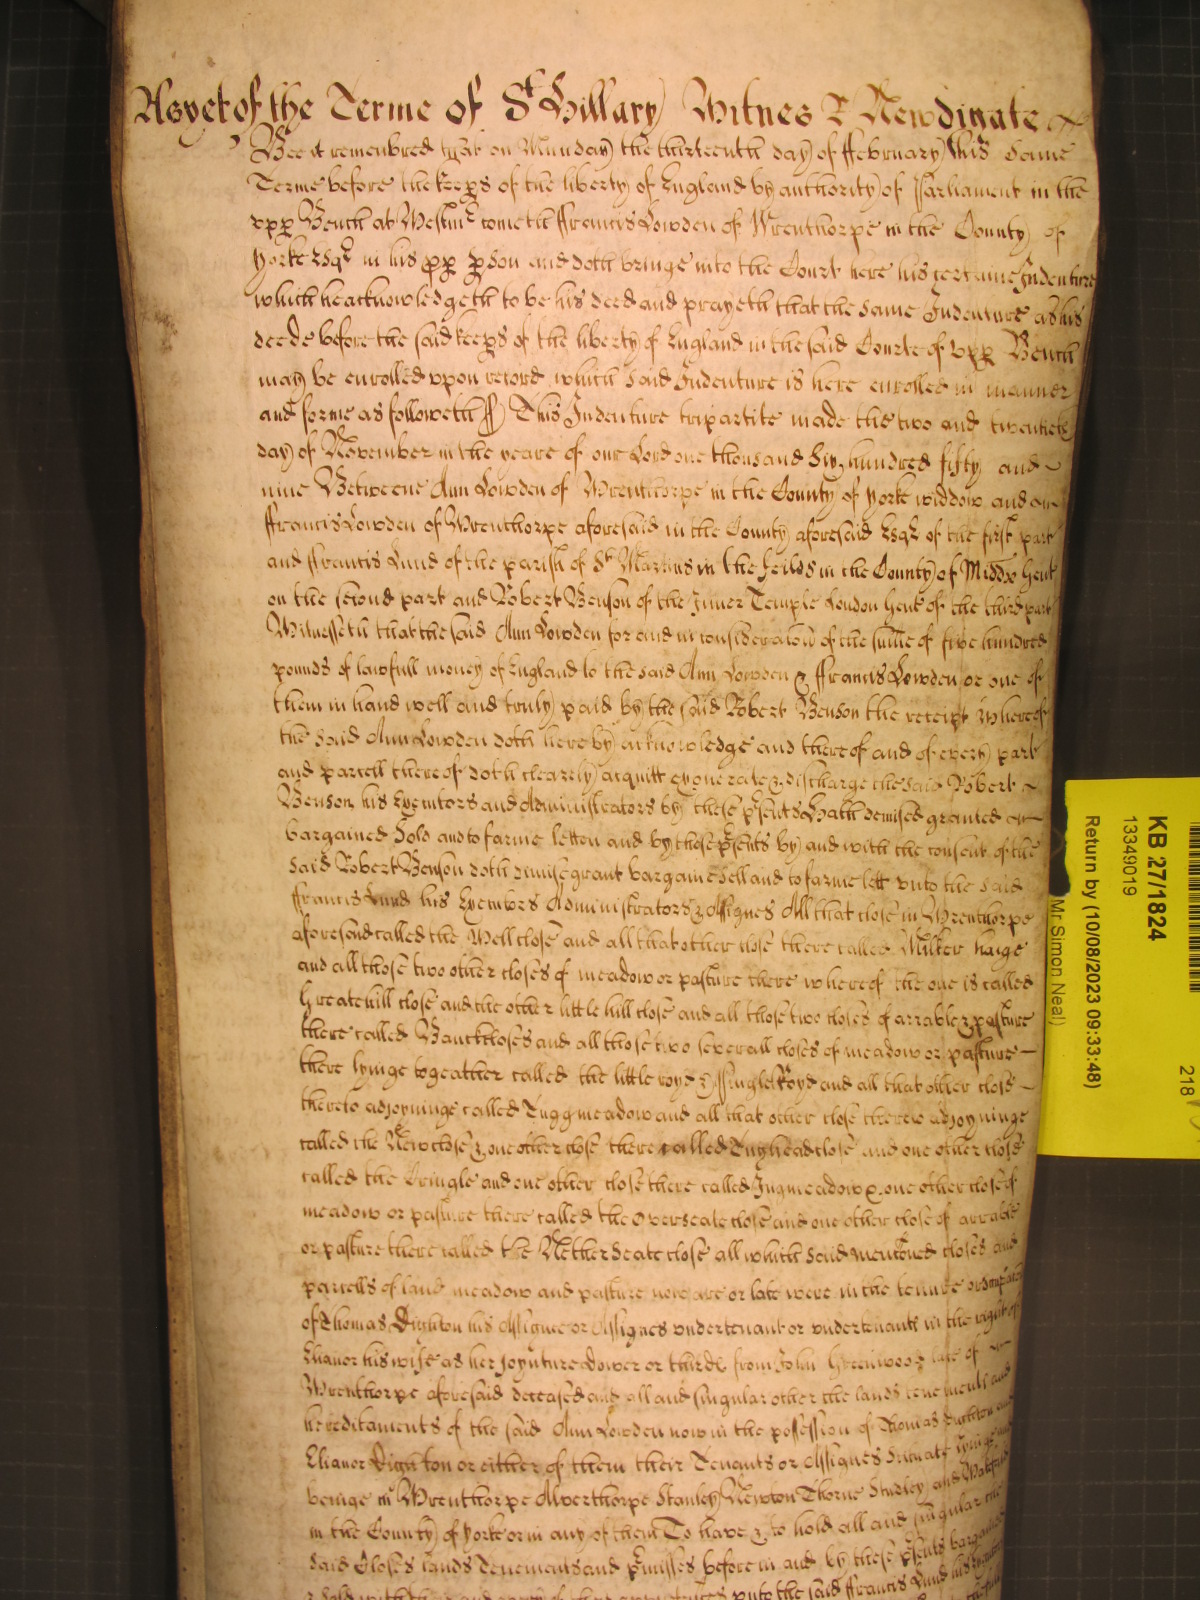 As yet of the Terme of St Hillary Witnes R Newdigate
Bee it remembred that on Munday the thirteenth day of ffebruary this same
Terme before the keeps of the liberty of England by authority of Parliament in the
vpp Bench at Westmr cometh ffrancis Lowden of Wrenthorpe in the County of
Yorke Esqr in his pp pson and doth bringe into the Court here his certaine Indenture
which he acknowledgeth to be his deed and prayeth that the same Indenture as his
deede before the said keeps of the liberty of England in the said Courte of vpp Bench
may be enrolled vpon record which said Indenture is here enrolled in manner
and forme as followeth ss This Indenture tripartite made the two and twentieth
day of November in the yeare of our Lord one thousand Six hundred fifty and
nine Betweene Ann Lowden of Wrenthorpe in the County of Yorke widdow and
ffrancis Lowden of Wrenthorpe aforesaid in the County aforesaid Esqr of the first part
and ffrancis Lund of the parish of St Martins in the feilds in the County of Middx Gent
on the second part and Robert Benson of the Inner Temple London Gent of the third part
Witnesseth that the said Ann Lowden for and in consideracion of the summe of five hundred
pounds of lawfull money of England to the said Ann Lowden & ffrancis Lowden or one of
them in hand well and truly paid by the said Robert Benson the receipt whereof
the said Ann Lowden doth hereby acknowledge and thereof and of every part
and parcell thereof doth clearely acquitt exonerate & discharge the said Robert
Benson his Executors and Administrators by these psents Hath demised granted
bargained Sold and to farme letten and by these psents by and with the consent of the
said Robert Benson doth dimise grant bargaine sell and to farme lett vnto the said
ffrancis Lund his Executors Administrators & Assignes All that close in Wrenthorpe
aforesaid called the Well close and all that other close there called Milker haige
and all those two other closes of meadow or pasture there whereof the one is called
Greate hill close and the other little hill close and all those two closes of arrable & pasture
there called Banckcloses and all those two severall closes of meadow or pasture
there lyinge togeather called the little royd & Single Royd and all that other close
thereto adjoyninge called Tuggmeadow and all that other close thereto adjoyninge
called the Newclose & one other close there called Inghead close and one other close
called the Pringle and one other close there called Ingmeadow & one other close of
meadow or pasture there called the Overseate close and one other close of arrable
or pasture there called the Nether Seate close all which said mentioned closes and
parcells of land meadow and pasture now are or late were in the tenure or
of Thomas Dighton his Assignee or Assignes vndertenant or vndertenants in the right of
Elianor his wife as her joynture dower or thirds from John Greenwood late of
Wrenthorpe aforesaid deceased and all and singular other the lands tenements and
hereditaments of the said Ann Lowden now in the possession of Thomas Dighton and
Elianor Dighton or either of them their Tenants or Assignes scituate lyinge and
beinge in Wrenthorpe Alverthorpe Stanley Newton Thorne Studley and Wakefeild
in the County of Yorke or in any of them To have & to hold all and singular the
said Closes lands Tenements and pmisses before in and by these psents bargained
& Sold with their and every of their vnto the said ffrancis Lund his
KB 27/1824
13349019
Return by (10/08/2023 09:33:48)
Mr Simon Neal)
218